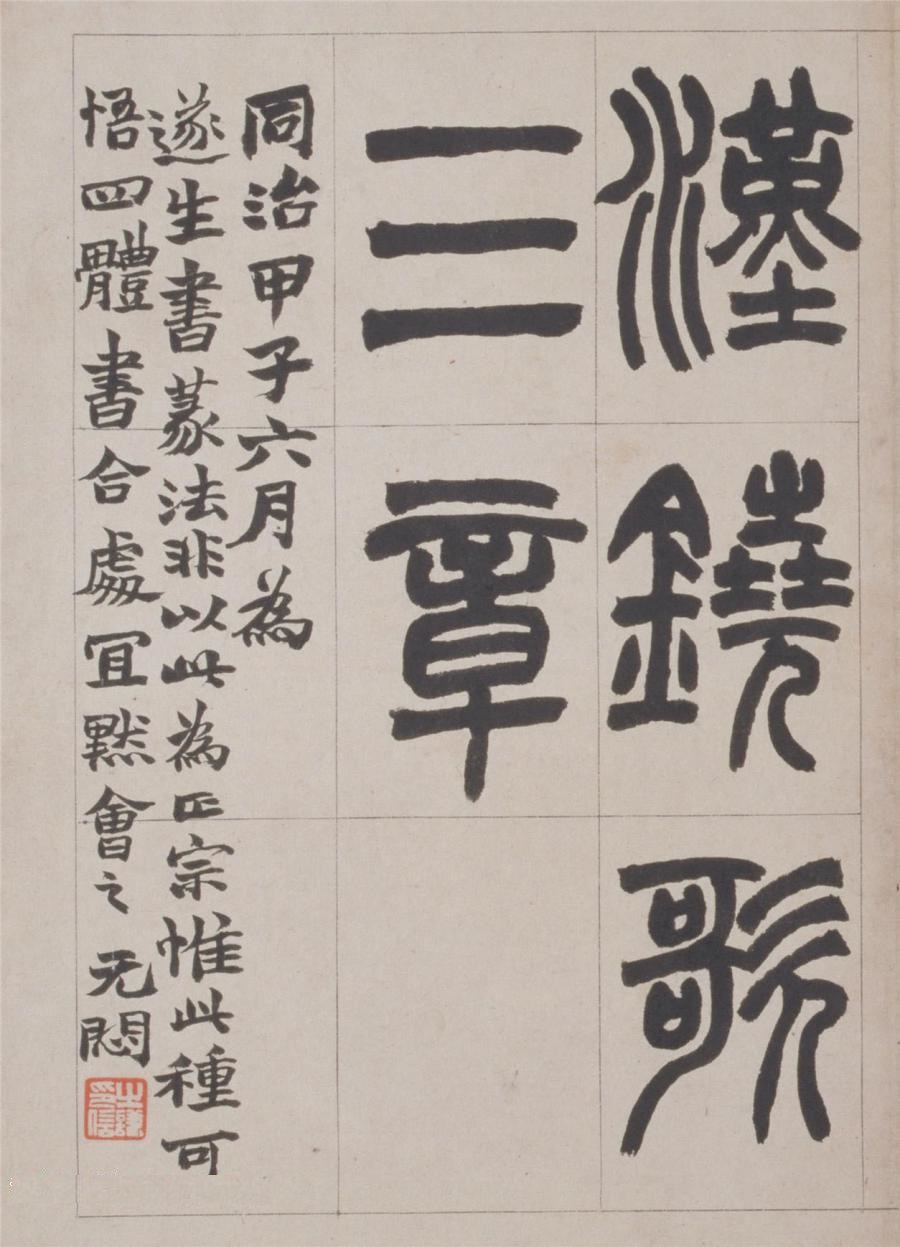 漢鐃歌
三章
同治甲子六月為
遂生書篆法非以此為正宗惟此種可
悟四體書合處宜默會之无悶
之謙印信